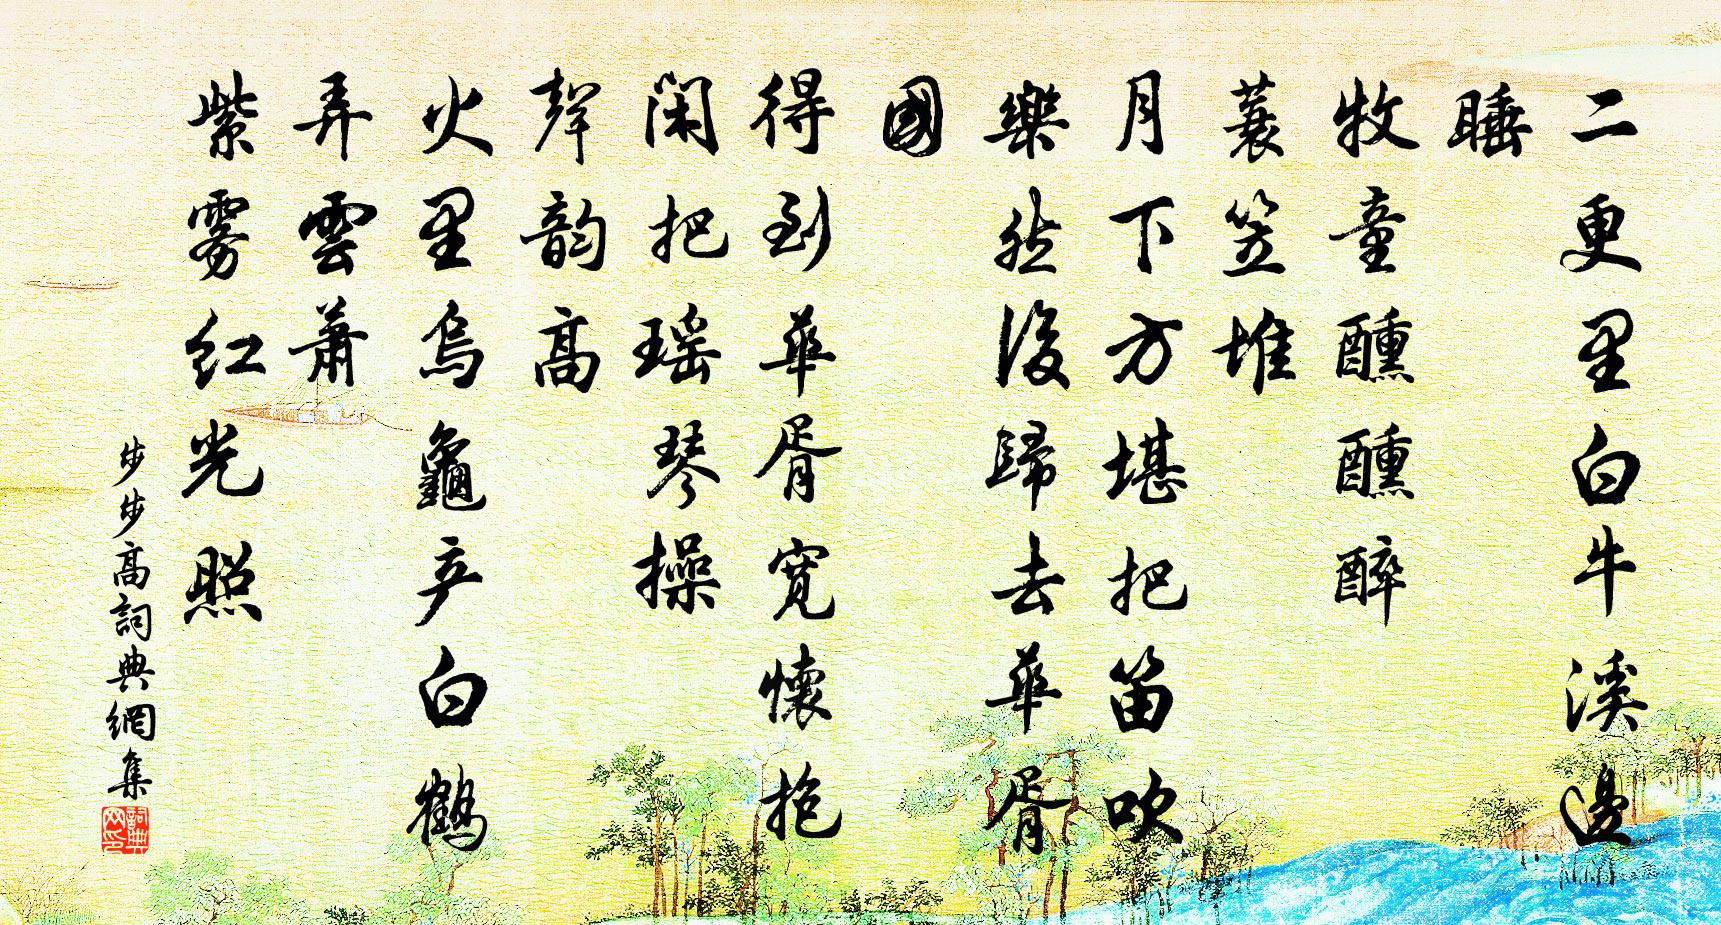 二更里白牛溪邊
睡
牧童醺醺醉
蓑笠堆
月下方堪把笛吹
樂然後歸去華胥
國
得到華胥寬懷抱
閑把瑶琴操
聲韵高
火里烏龜产白鶴
弄雲萧
紫雾红光照
步步高詞典網集
詞典网印